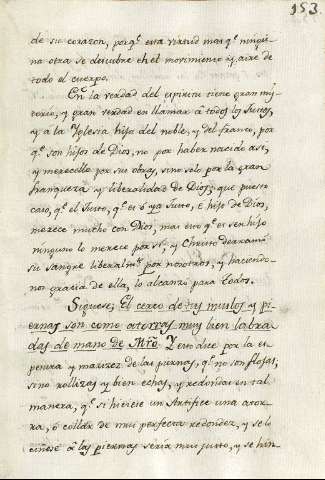 153
de su corazon, porq.e esta virtud mas q.e ningu-
na otra se descubre en el movimiento y aire de
todo el cuerpo.
En la verdad del espiritu tiene gran mis-
terio, y gran verdad en llamar à todos los Justos,
y à la Yglesia hija del noble, y del franco, por
q.e son hijos de Dios, no por haber nacido asi,
y merecello por sus obras, sino solo por la gran
franqueza y liberalidad de Dios; que puesto
caso, q.e el Justo, q.e es ò ya Justo, è hijo de Dios,
merece mucho con Dios, mas esto q.e es ser hijo
ninguno lo merece por sì, y Christo derramò
su sangre liberalm.te por nosotros, y haciendo
nos gracia de ella, lo alcanzò para todos.
Siguese: El cerco de tus muslos y pi-
ernas son como ajorcas muy bien labra-
das de mano de Mro. Y esto dice por la es-
pesura y macicez de las piernas, q.e no son flojas,
sino rollizas y bien echas, y redondas en tal
manera, q.e si hiciese un Artifice una ajor-
ca, ò collar de mui perfecta redondez, y se lo
ciñese à las piernas seria mui justo, y se hin-